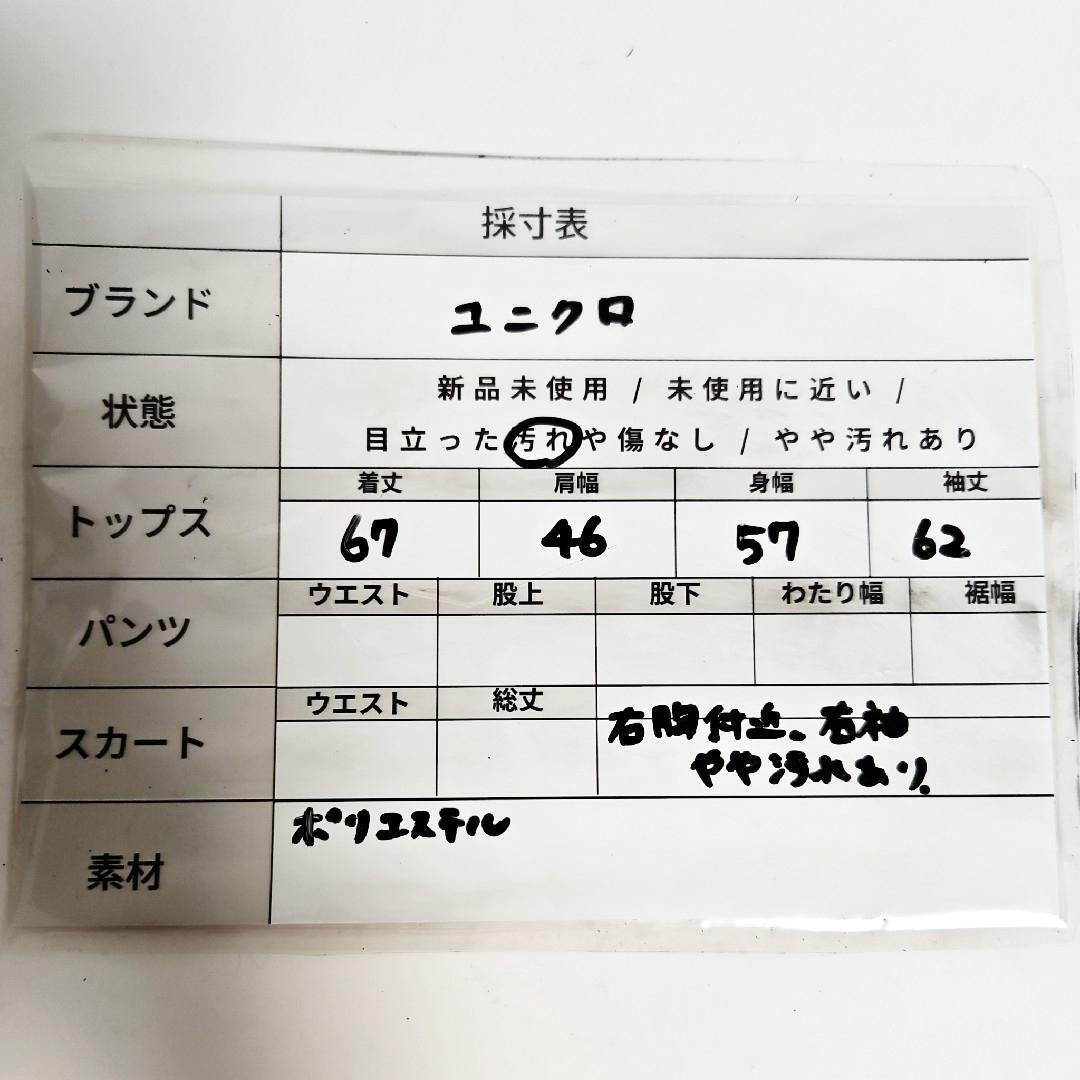 採寸表
ブランド
ユニクロ
状態
新品未使用 / 未使用に近い /
目立った汚れや傷なし / やや汚れあり
トップス
着丈 肩幅 身幅 袖丈
67 46 57 62
パンツ
ウエスト 股上 股下 わたり幅 裾幅
スカート
ウエスト 総丈
右胸付近、右袖
やや汚れあり。
素材
ポリエステル